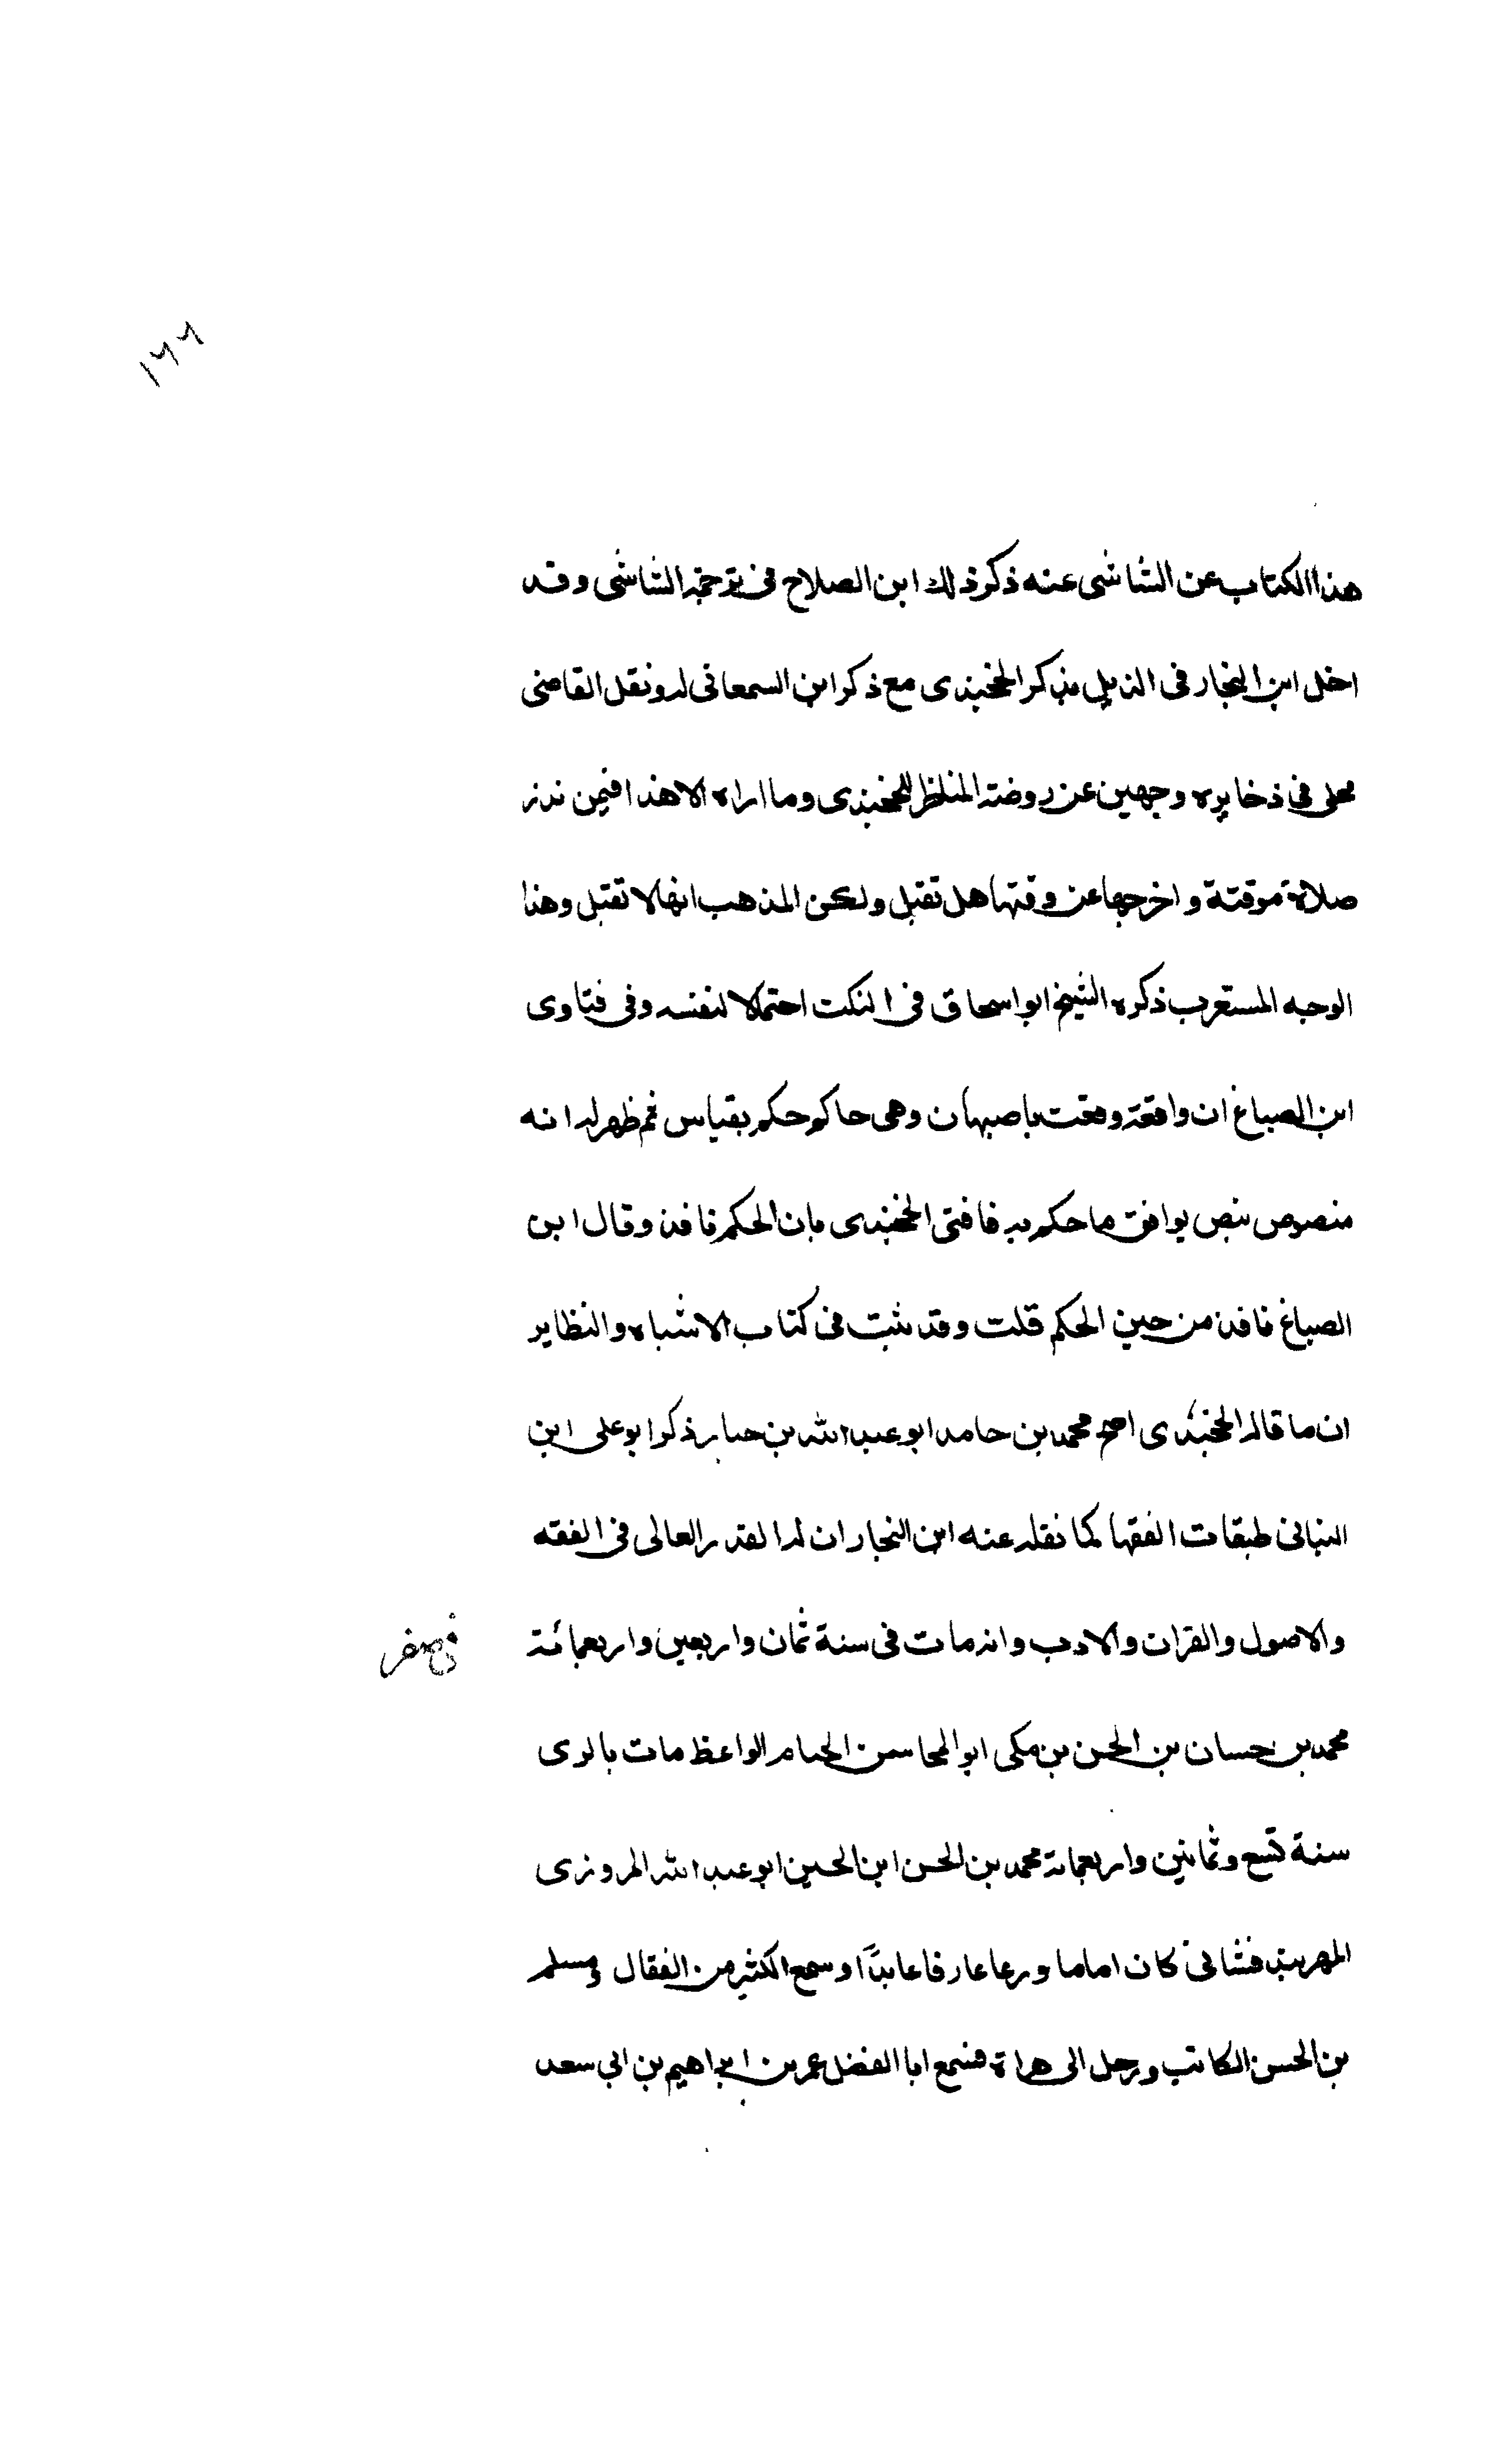 ١٦٦
هذا الكتاب عن الشاشى عنه ذكر ذلك ابن الصلاح فى ترجمة الشاشى وقد
اخل ابن النجار فى الذيل بذكر الخجندى مع ذكر ابن السمعانى له ونقل القاضى
محلى فى ذخايره وجهين عن روضة المناظر للخجندى وما اراه الا هذا فيمن نذر
صلاة موقتة واخرجها عن وقتها هل تقبل ولكن المذهب انها لا تقبل وهذا
الوجه المستغرب ذكره الشيخ ابو اسحاق فى النكت احتمالا لنفسه وفى فتاوى
ابن الصباغ ان واقعة وقعت باصبهان وهى حاكم حكم بقياس ثم ظهر له انه
منصوص بنص يوافق ما حكم به فافتى الخجندى بان الحكم نافذ وقال ابن
الصباغ نافذ من حين الحكم قلت وقد ثبت فى كتاب الاشباه والنظاير
ان ما قاله الخجندى اصح محمد بن حامد ابو عبد الله بن حبار ذكر ابو على ابن
البنا فى طبقات الفقها كما نقله عنه ابن النجار ان له القدر العالى فى الفقه
والاصول والقران والادب وانه مات فى سنة ثمان واربعين واربعمائة
فى صفر
محمد بن حسان بن الحسن بن مكى ابو المحاسن الحبام الواعظ مات بالرى
سنة تسع وثمانين واربعماية محمد بن الحسن ابن الحسين ابو عبد الله المروزى
المهربندفشانى كان اماما ورعا عارفا عابدًا وسمع الكثير من القفال ومسلم
بن الحسن الكاتب ورحل الى هراة فسمع ابا الفضل عمر بن ابراهيم بن ابى سعد